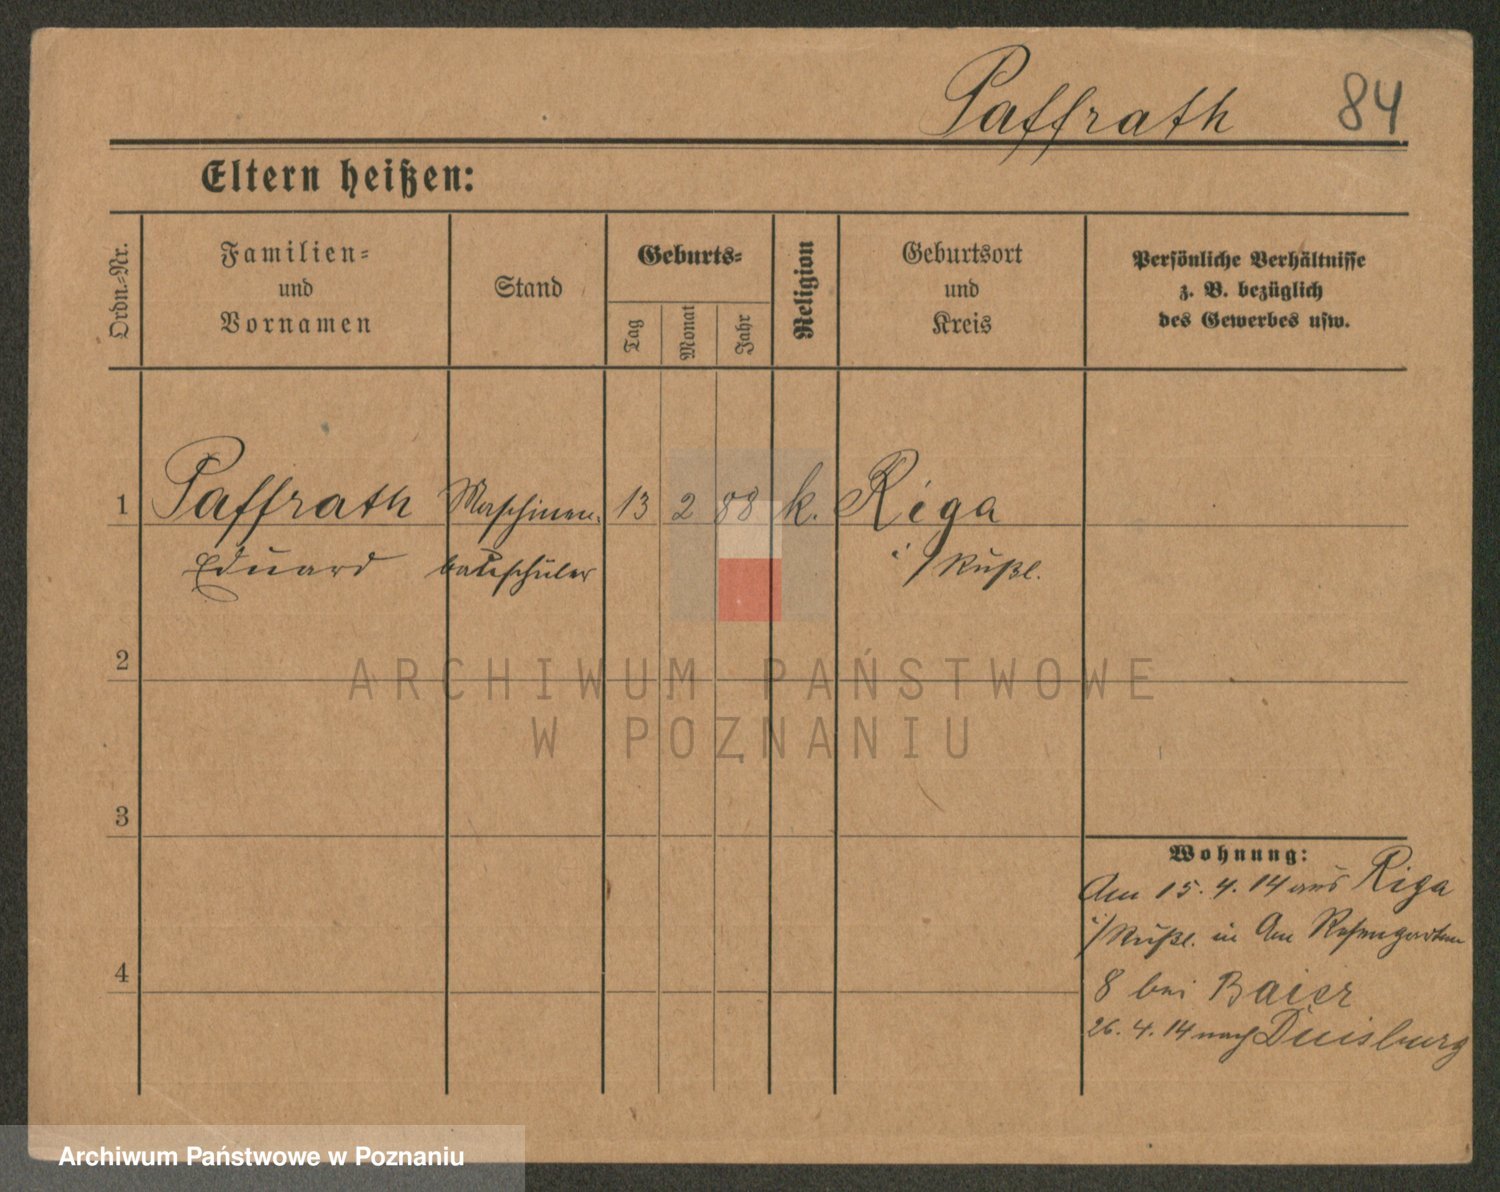 Paffrath 84
Eltern heißen:
Ordn.-Nr.
Familien-
und
Vornamen
Stand
Geburts-
Tag
Monat
Jahr
Religion
Geburtsort
und
Kreis
Persönliche Verhältnisse
z. B. bezüglich
des Gewerbes usw.
1 Paffrath Maschinen- 13 2 88 k. Riga
Eduard bauschüler i/Rußl.
2
ARCHIWUM PAŃSTWOWE
W POZNANIU
3
Wohnung:
Am 15.4.14 aus Riga
i/Rußl. in Am Rosengarten
4
8 bei Baier
26.4.14 nach Duisburg
Archiwum Państwowe w Poznaniu